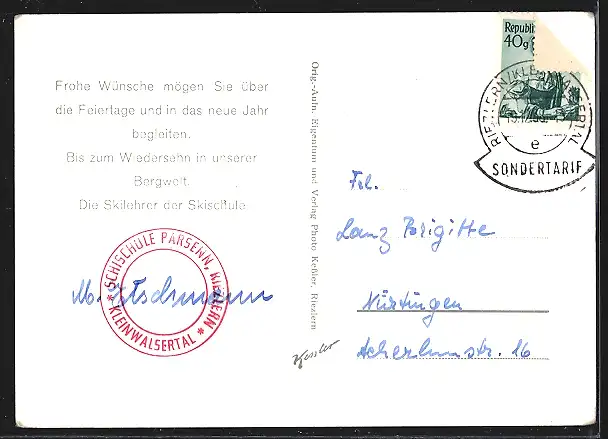 Frohe Wünsche mögen Sie über
die Feiertage und in das neue Jahr
begleiten.
Bis zum Wiedersehn in unserer
Bergwelt.
Die Skilehrer der Skischule
* SCHISCHULE PARSENN, RIEZLERN *
KLEINWALSERTAL
M.
Orig.-Aufn. Eigentum und Verlag Photo Keßler, Riezlern
Kessler
Republi
40g
RIEZLERN (KLEINWALSERTAL)
e
SONDERTARIF
Frl.
Lanz Brigitte
Nürtingen
Acherlinstr. 16